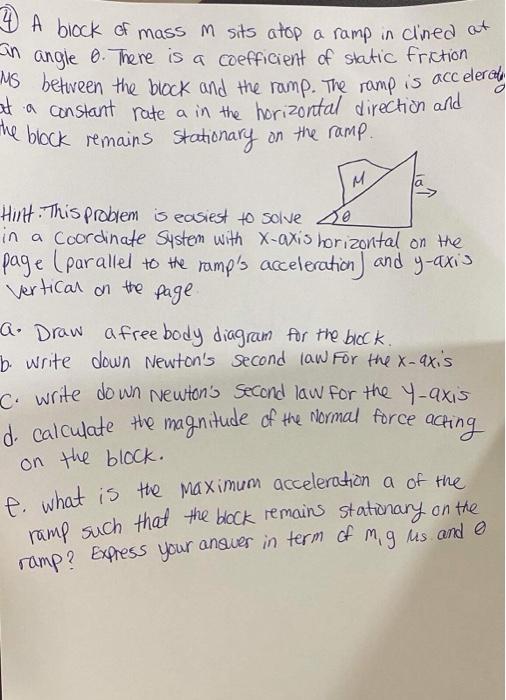 ④ A block of mass M sits atop a ramp in clined at
an angle θ. There is a coefficient of static friction
μs between the block and the ramp. The ramp is accelerat
at a constant rate a in the horizontal direction and
the block remains stationary on the ramp.
M
a
θ
Hint: This problem is easiest to solve
in a Coordinate System with X-axis horizontal on the
page (parallel to the ramp's acceleration) and y-axis
vertical on the page
a. Draw a free body diagram for the block.
b. write down Newton's second law For the x-axis
c. write down Newton's second law for the y-axis
d. calculate the magnitude of the Normal force acting
on the block.
e. what is the maximum acceleration a of the
ramp such that the block remains stationary on the
ramp? Express your answer in term of m, g μs. and θ